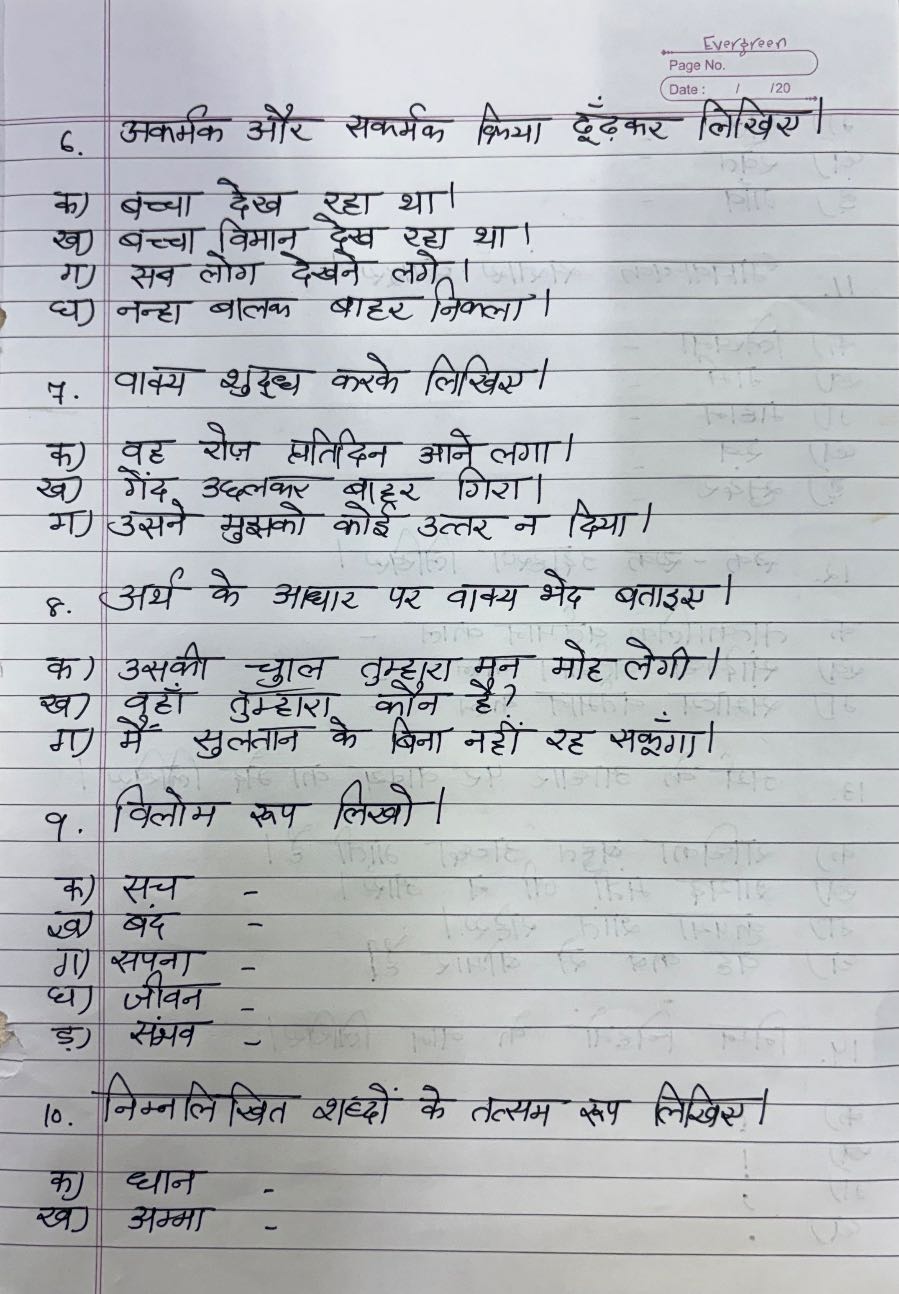 Evergreen
Page No.
Date : / /20
6. अकर्मक और सकर्मक क्रिया ढूँढ़कर लिखिए।
क) बच्चा देख रहा था।
ख) बच्चा विमान देख रहा था।
ग) सब लोग देखने लगे।
घ) नन्हा बालक बाहर निकला।
7. वाक्य शुद्ध करके लिखिए।
क) वह रोज़ प्रतिदिन आने लगा।
ख) गेंद उछलकर बाहर गिरा।
ग) उसने मुझको कोई उत्तर न दिया।
8. अर्थ के आधार पर वाक्य भेद बताइए।
क) उसकी चाल तुम्हारा मन मोह लेगी।
ख) वहाँ तुम्हारा कौन है?
ग) मैं सुलतान के बिना नहीं रह सकूँगा।
9. विलोम रूप लिखो।
क) सच -
ख) बंद -
ग) सपना -
घ) जीवन -
ङ) संभव -
10. निम्नलिखित शब्दों के तत्सम रूप लिखिए।
क) धान -
ख) अम्मा -